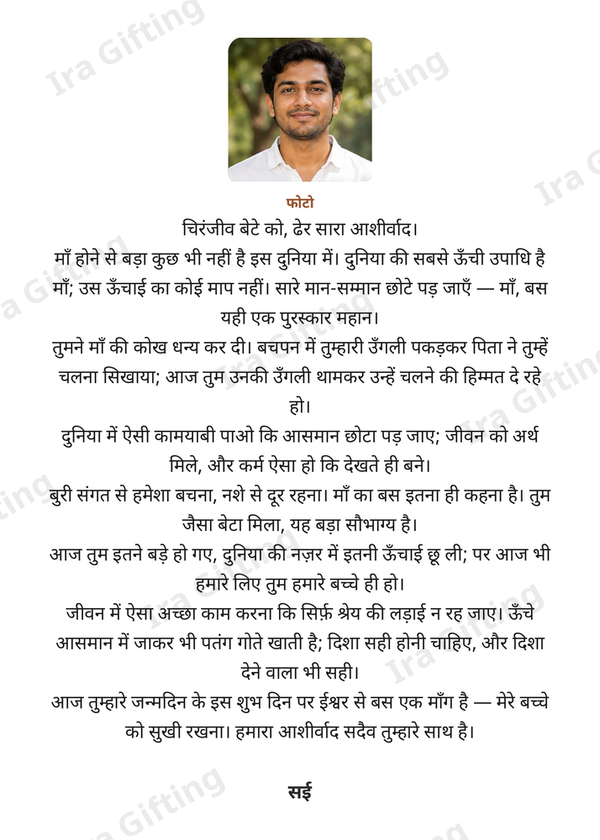 Ira Gifting
फोटो
चिरंजीव बेटे को, ढेर सारा आशीर्वाद।
माँ होने से बड़ा कुछ भी नहीं है इस दुनिया में। दुनिया की सबसे ऊँची उपाधि है
माँ; उस ऊँचाई का कोई माप नहीं। सारे मान-सम्मान छोटे पड़ जाएँ — माँ, बस
यही एक पुरस्कार महान।
तुमने माँ की कोख धन्य कर दी। बचपन में तुम्हारी उँगली पकड़कर पिता ने तुम्हें
चलना सिखाया; आज तुम उनकी उँगली थामकर उन्हें चलने की हिम्मत दे रहे
हो।
दुनिया में ऐसी कामयाबी पाओ कि आसमान छोटा पड़ जाए; जीवन को अर्थ
मिले, और कर्म ऐसा हो कि देखते ही बने।
बुरी संगत से हमेशा बचना, नशे से दूर रहना। माँ का बस इतना ही कहना है। तुम
जैसा बेटा मिला, यह बड़ा सौभाग्य है।
आज तुम इतने बड़े हो गए, दुनिया की नज़र में इतनी ऊँचाई छू ली; पर आज भी
हमारे लिए तुम हमारे बच्चे ही हो।
जीवन में ऐसा अच्छा काम करना कि सिर्फ़ श्रेय की लड़ाई न रह जाए। ऊँचे
आसमान में जाकर भी पतंग गोते खाती है; दिशा सही होनी चाहिए, और दिशा
देने वाला भी सही।
आज तुम्हारे जन्मदिन के इस शुभ दिन पर ईश्वर से बस एक माँग है — मेरे बच्चे
को सुखी रखना। हमारा आशीर्वाद सदैव तुम्हारे साथ है।
सई